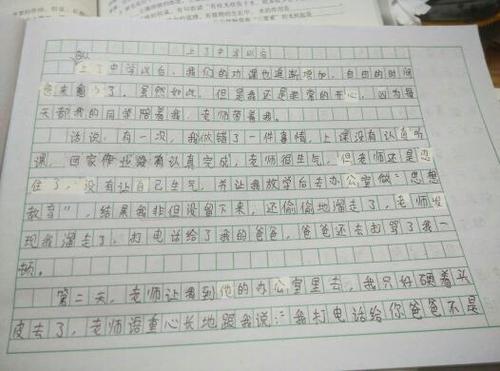 上了中学以后
自从上了中学以后，我们的功课也逐渐增加，自由的时间
越来越少了。虽然如此，但是我还是非常的开心，因为每
天都我的同学陪着我，老师带着我。
话说，有一次，我做错了一件事情，上课没有认真听
课，回家作业没有认真完成，老师很生气，但老师还是忍
住了，没有让自己生气，并让我放学后去办公室做“思想
教育”，结果我非但没留下来，还偷偷地溜走了，老师发
现我溜走了，打电话给了我的爸爸，爸爸还去打骂了我一
顿。
第二天，老师让我到他的办公室里去，我只好硬着头
皮去了，老师语重心长地跟我说：“我打电话给你爸爸不是